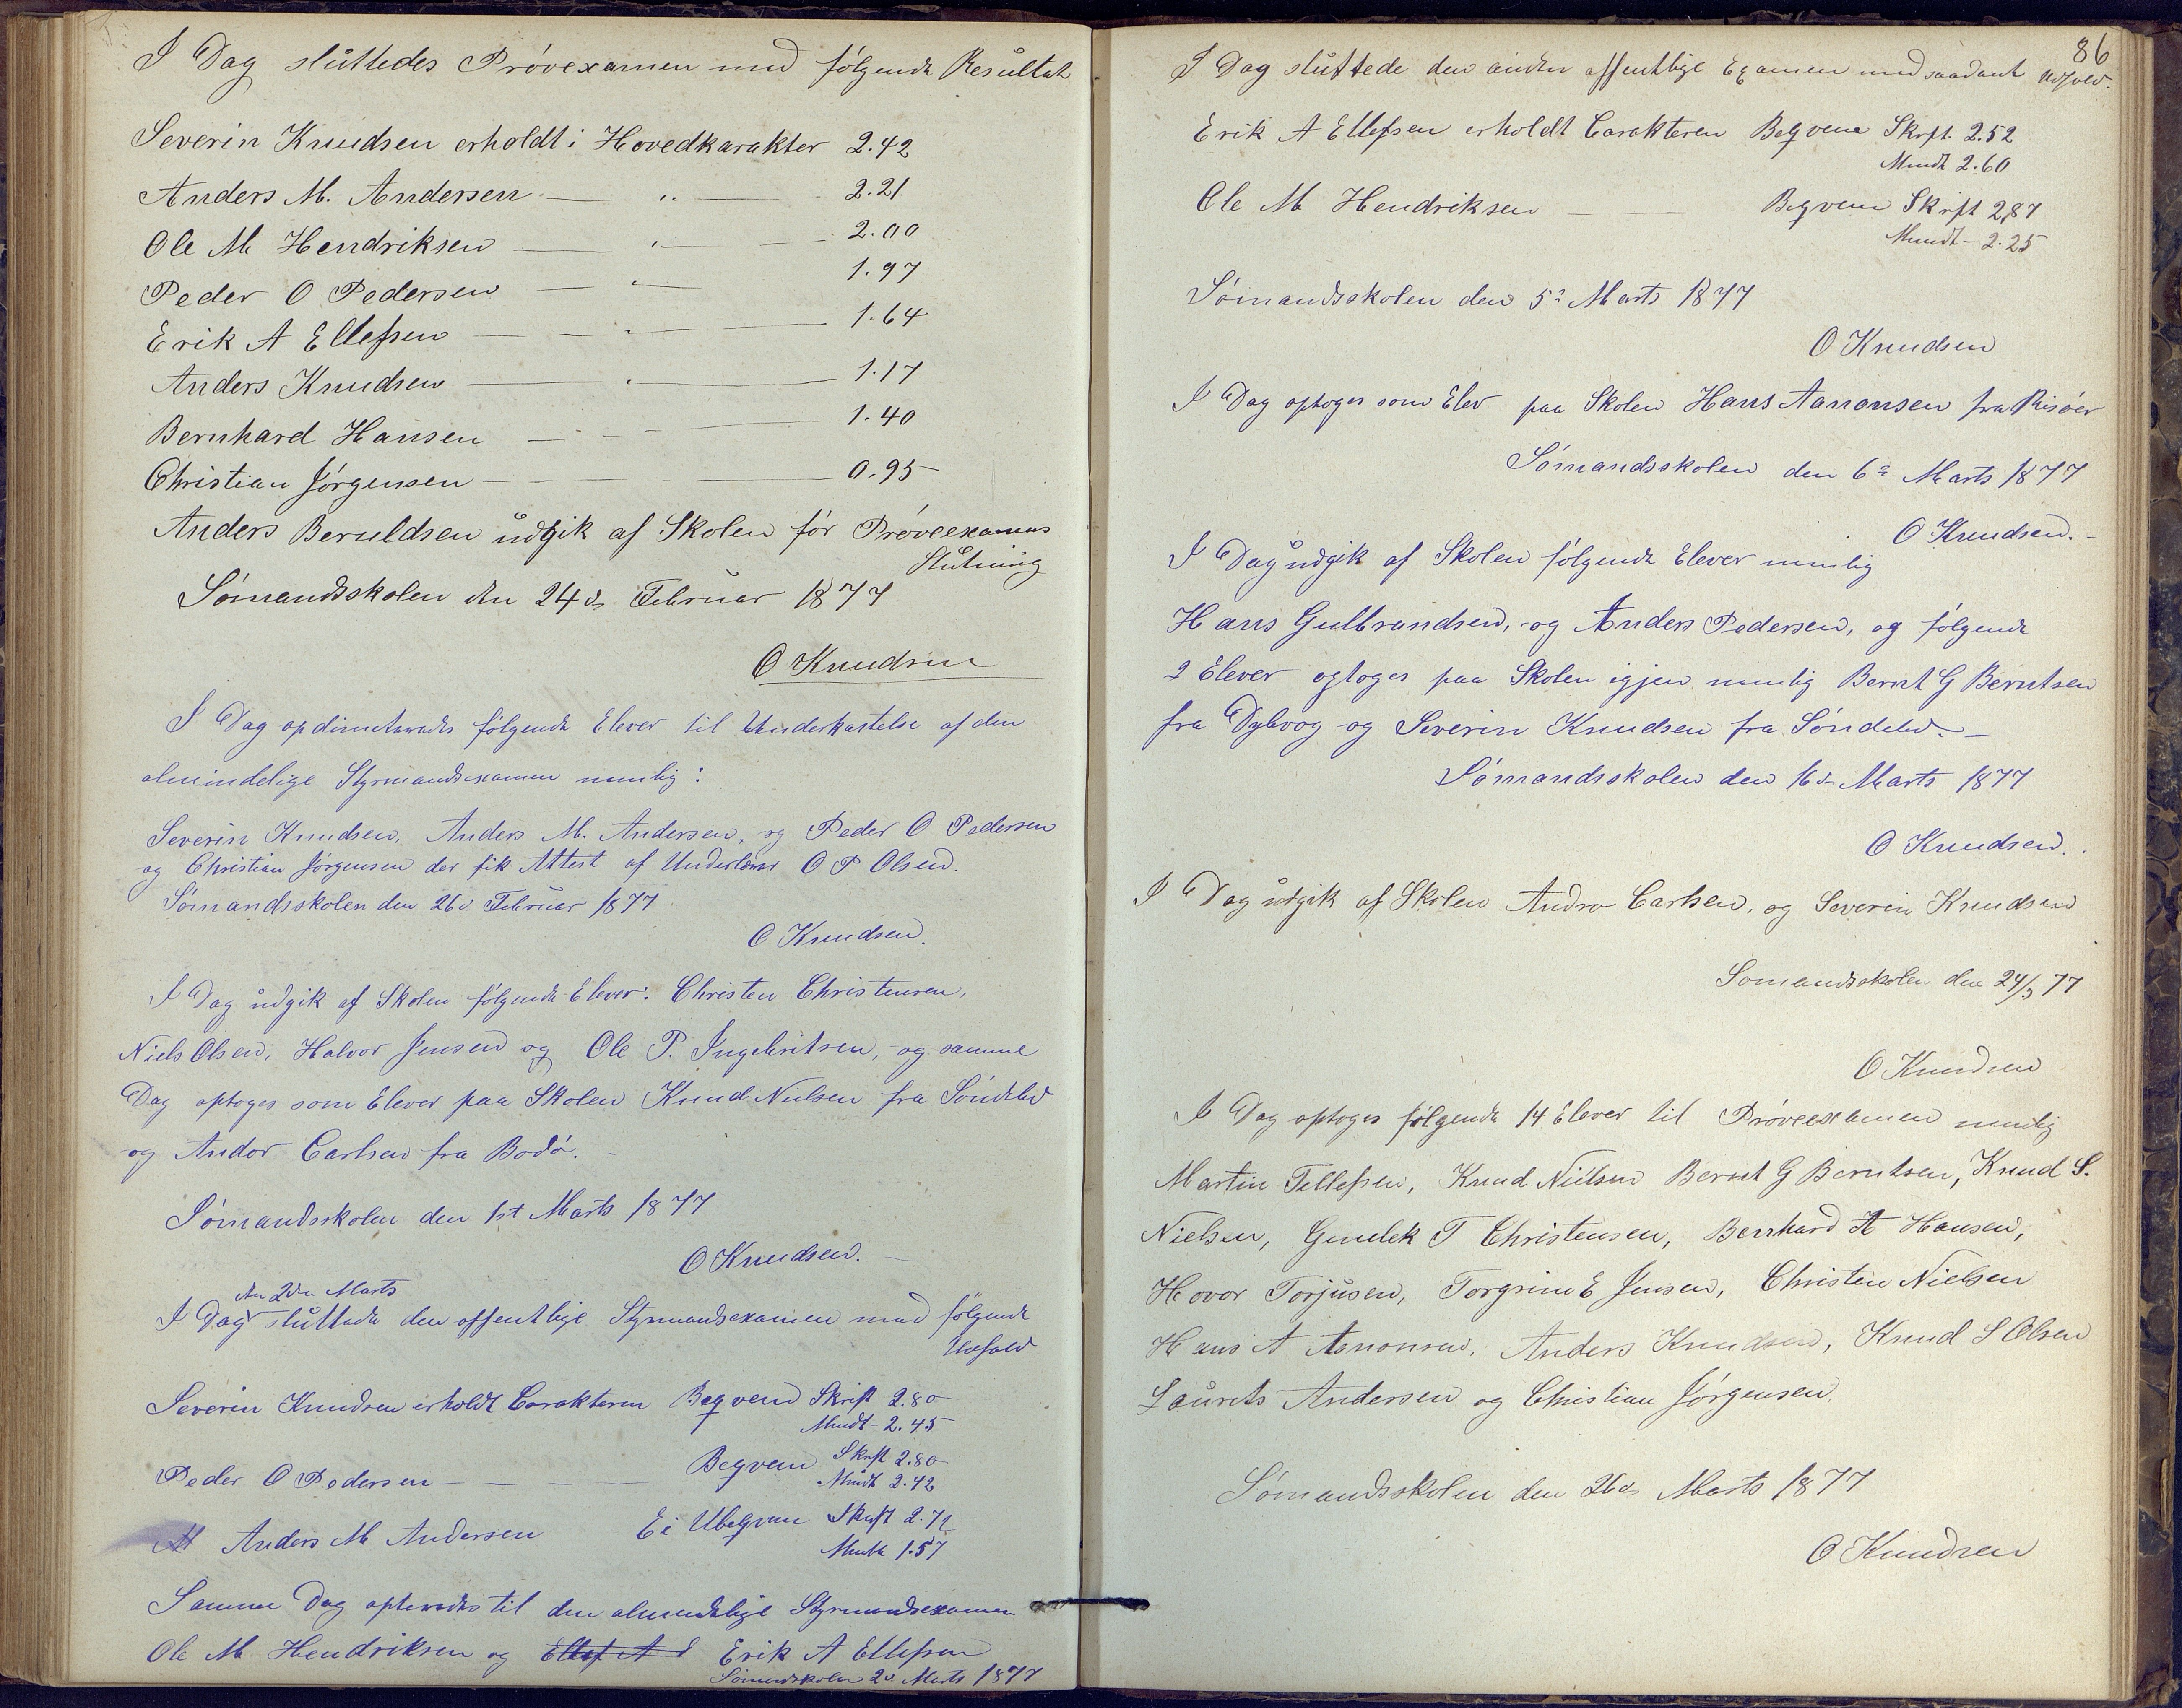 I Dag sluttedes Prøvexamen med følgende Resultat
Severin Knudsen erholdt i Hovedkarakter 2.42
Anders M. Andersen — „ — 2.21
Ole M Hendriksen — „ — 2.00
Peder O Pedersen — „ — 1.97
Erik A Ellefsen — „ — 1.64
Anders Knudsen — „ — 1.17
Bernhard Hansen — — 1.40
Christian Jørgensen — — 0.95
Anders Beruldsen udgik af Skolen før Prøveexamens
Slutning
Sømandsskolen den 24de Februar 1877
O Knudsen
I Dag opdimiteredes følgende Elever til Underkastelse af den
almindelige Styrmandsexamen nemlig:
Severin Knudsen, Anders M. Andersen, og Peder O Pedersen
og Christian Jørgensen der fik Attest af Underlærer O P Olsen.
Sømandsskolen den 26d Februar 1877
O Knudsen.
I Dag udgik af Skolen følgende Elever: Christen Christensen,
Niels Olsen, Halvor Jensen og Ole P. Ingebritsen, og samme
Dag optoges som Elever paa Skolen Knud Nielsen fra Søndeled
og Andor Carlsen fra Bodø.
Sømandsskolen den 1st Marts 1877
O Knudsen.
den 2den Marts
I Dag sluttede den offentlige Styrmandsexamen med følgende
Udfald
Severin Knudsen erholdt Carakteren Beqvem Skrift 2.80
Mundt - 2.45
Peder O Pedersen — — Beqvem Skrift 2.80
Mundt 2.42
Anders M Andersen Ei Ubeqvem Skrift 2.72
Mundt 1.57
Samme Dag til den almindelige Styrmandsexamen
Ole M Hendriksen og Ellef A E Erik A Ellefsen
Sømandsskolen 2d Marts 1877
86
I Dag sluttede den anden offentlige Examen med saadant Udfald.
Erik A Ellefsen erholdt Carakteren Beqvem Skrft. 2.52
Mundt 2.60
Ole M Hendriksen — — Beqvem Skrift 2,87
Mundt - 2.25
Sømandsskolen den 5te Marts 1877
O Knudsen
I Dag optoges som Elev paa Skolen Hans Aanonsen fra Risøer
Sømandsskolen den 6te Marts 1877
O Knudsen.
I Dag udgik af Skolen følgende Elever nemlig
Hans Gulbrandsen, og Anders Pedersen, og følgende
2 Elever optoges paa Skolen igjen nemlig Bernt G Berntsen
fra Dybvog og Severin Knudsen fra Søndeled.
Sømandsskolen den 16de Marts 1877
O Knudsen.
I Dag udgik af Skolen Andor Carlsen, og Severin Knudsen
Somandsskolen den 24/3 77
O Knudsen
I Dag optoges følgende 14 Elever til Prøveexamen nemlig
Martin Tellefsen, Knud Nielsen Bernt G Berntsen, Knud S.
Nielsen, Gundek T Christensen, Bernhard A Hansen,
Hovor Torjusen, Torgrim E Jensen, Christen Nielsen
Hans A Aanonsen, Anders Knudsen, Knud S Olsen
Laurets Andersen og Christian Jørgensen.
Sømandsskolen den 26de Marts 1877
O Knudsen